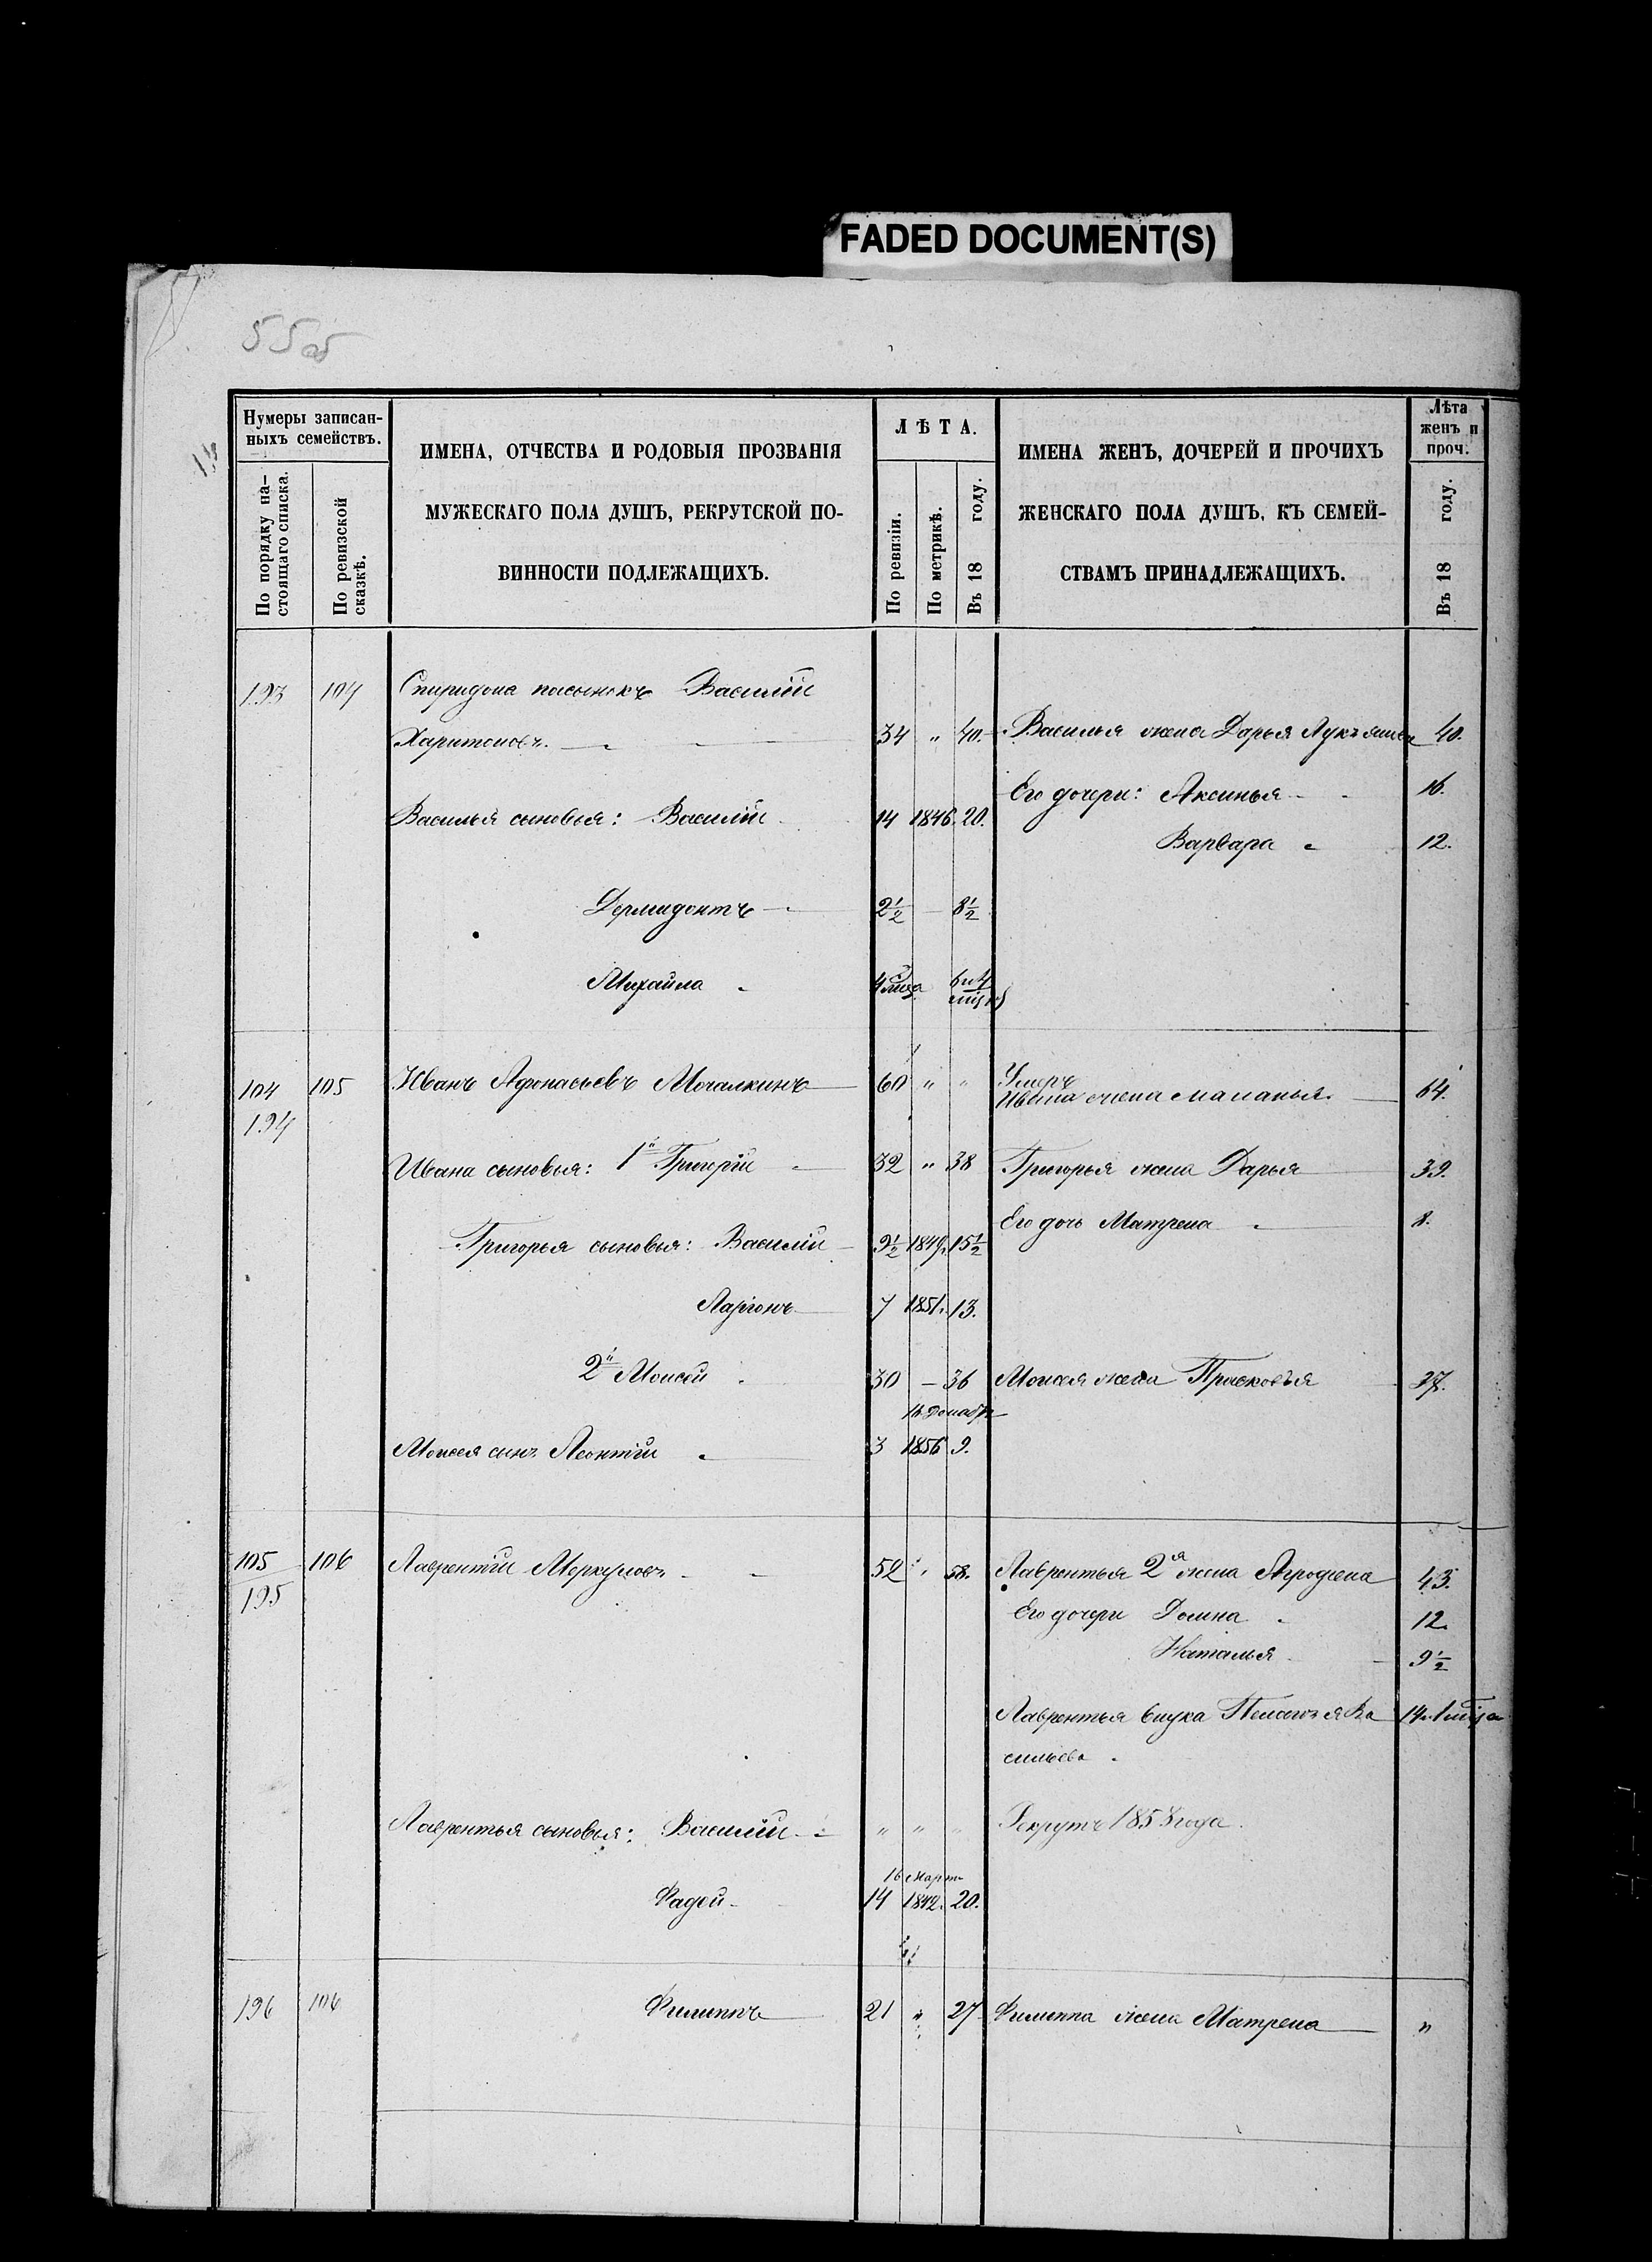 FADED DOCUMENT(S)
55об
Нумеры записан-
ныхъ семействъ.
По порядку на-
стоящаго списка.
По ревизской
сказкѣ.
ИМЕНА, ОТЧЕСТВА И РОДОВЫЯ ПРОЗВАНІЯ
МУЖЕСКАГО ПОЛА ДУШЪ, РЕКРУТСКОЙ ПО-
ВИННОСТИ ПОДЛЕЖАЩИХЪ.
ЛѢТА.
По ревизіи.
По метрикѣ.
Въ 18 году.
ИМЕНА ЖЕНЪ, ДОЧЕРЕЙ И ПРОЧИХЪ
ЖЕНСКАГО ПОЛА ДУШЪ, КЪ СЕМЕЙ-
СТВАМЪ ПРИНАДЛЕЖАЩИХЪ.
Лѣта
женъ и
проч.
Въ 18 году.
193 104 Спиридона пасынокъ Василій
Харитоновъ. 34 " 40. Василья жена Дарья Лукъянова 40.
Его дочери: Аксинья 16.
Василья сыновья: Василій 14 1846. 20.
Варвара 12.
Дермидонтъ 2½ — 8½
Михайла 4 мѣсяца 6 и 4 мѣсяц
104 105 Иванъ Афонасьевъ Мочалкинъ 60 " " Умеръ
194 Ивана жена Маланья. 64.
Ивана сыновья: 1й Григорій 32 " 38 Григорья жена Дарья 39.
Его дочь Матрена 8.
Григорья сыновья: Василій 9½ 1849. 15½
Ларіонъ 7 1851. 13.
2й Моисей 30 — 36 Моисея жена Прасковья 37.
16 Декабря
Моисея сынъ Леонтій 3 1856 9.
105 106 Лаврентій Меркуловъ 52 " 58. Лаврентья 2я жена Агрофена 43.
195 Его дочери Домна 12.
Наталья 9½
Лаврентья внука Пелагея Ва 14 и 1 мѣсяц
сильева
Лаврентья сыновья: Василій " " " Рекрутъ 1853 года.
16 Марта
Фадей 14 1842. 20.
196 106 Филиппъ 21 " 27 Филиппа жена Матрена "